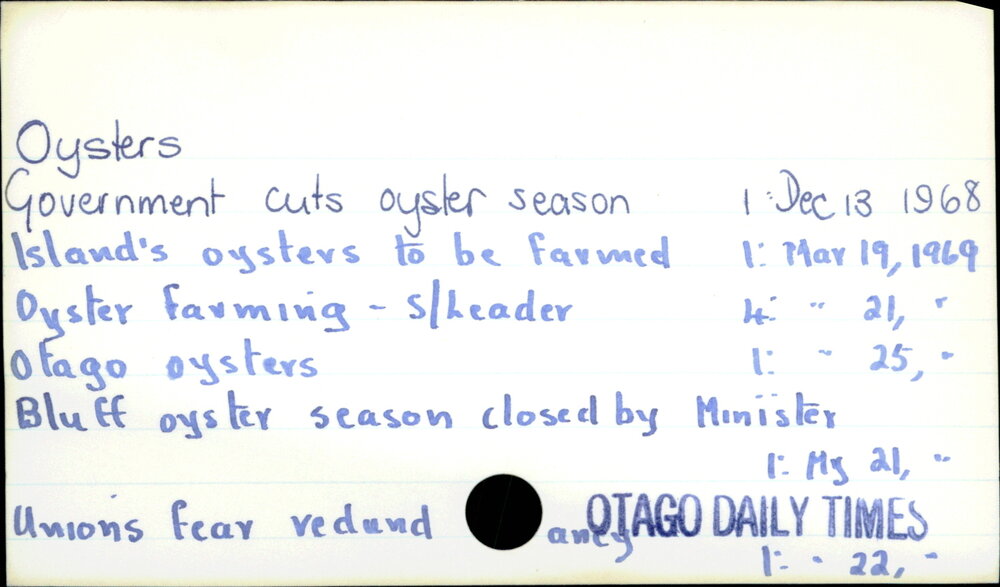 Oysters
Government cuts oyster season 1: Dec 13 1968
Island's oysters to be farmed 1: Mar 19, 1969
Oyster farming - S/Leader 4: " 21, "
Otago oysters 1: " 25, "
Bluff oyster season closed by Minister
1: My 21, "
Unions fear redund ancy OTAGO DAILY TIMES
1: " 22, "